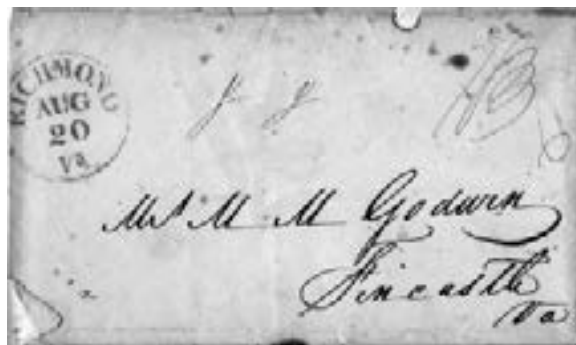 RICHMOND
AUG
20
Va
Mrs M M Godwin
Fincastle
Va